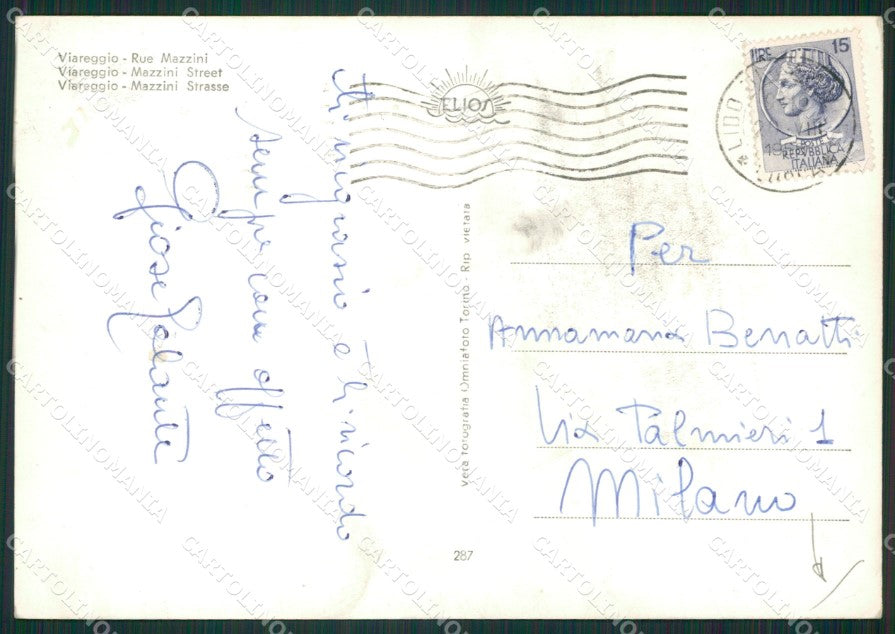 Viareggio - Rue Mazzini
Viareggio - Mazzini Street
Viareggio - Mazzini Strasse
Ti ringrazio e ti ricordo
sempre con affetto
Giose Galante
ELIOS
LIDO
LIRE 15
POSTE
REPVBBLICA
ITALIANA
Per
Annamaria Benatti
Via Palmieri 1
Milano
vera fotografia Omniafoto Torino - Rip. vietata
287
CARTOLINOMANIA